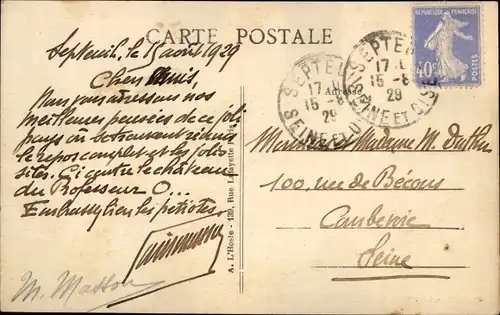 CARTE POSTALE
Septeuil, le 15 août 1929
Chers Amis,
Nous vous adressons nos
meilleures pensées de ce joli
pays où se trouvent réunis
le repos complet et les jolis
sites. Ci contre le château
du Professeur O...
Embrassez bien les petiotes
M. Masson
A. L'Hoste - 139, Rue Lafayette Paris
Adresse
REPUBLIQUE FRANÇAISE
40c
POSTES
SEPTEUIL
17
15-8
29
SEINE ET OISE
SEPTEUIL
17
15-8
29
SEINE ET OISE
Madame M.
100, rue de Bécons
Courbevoie
Seine